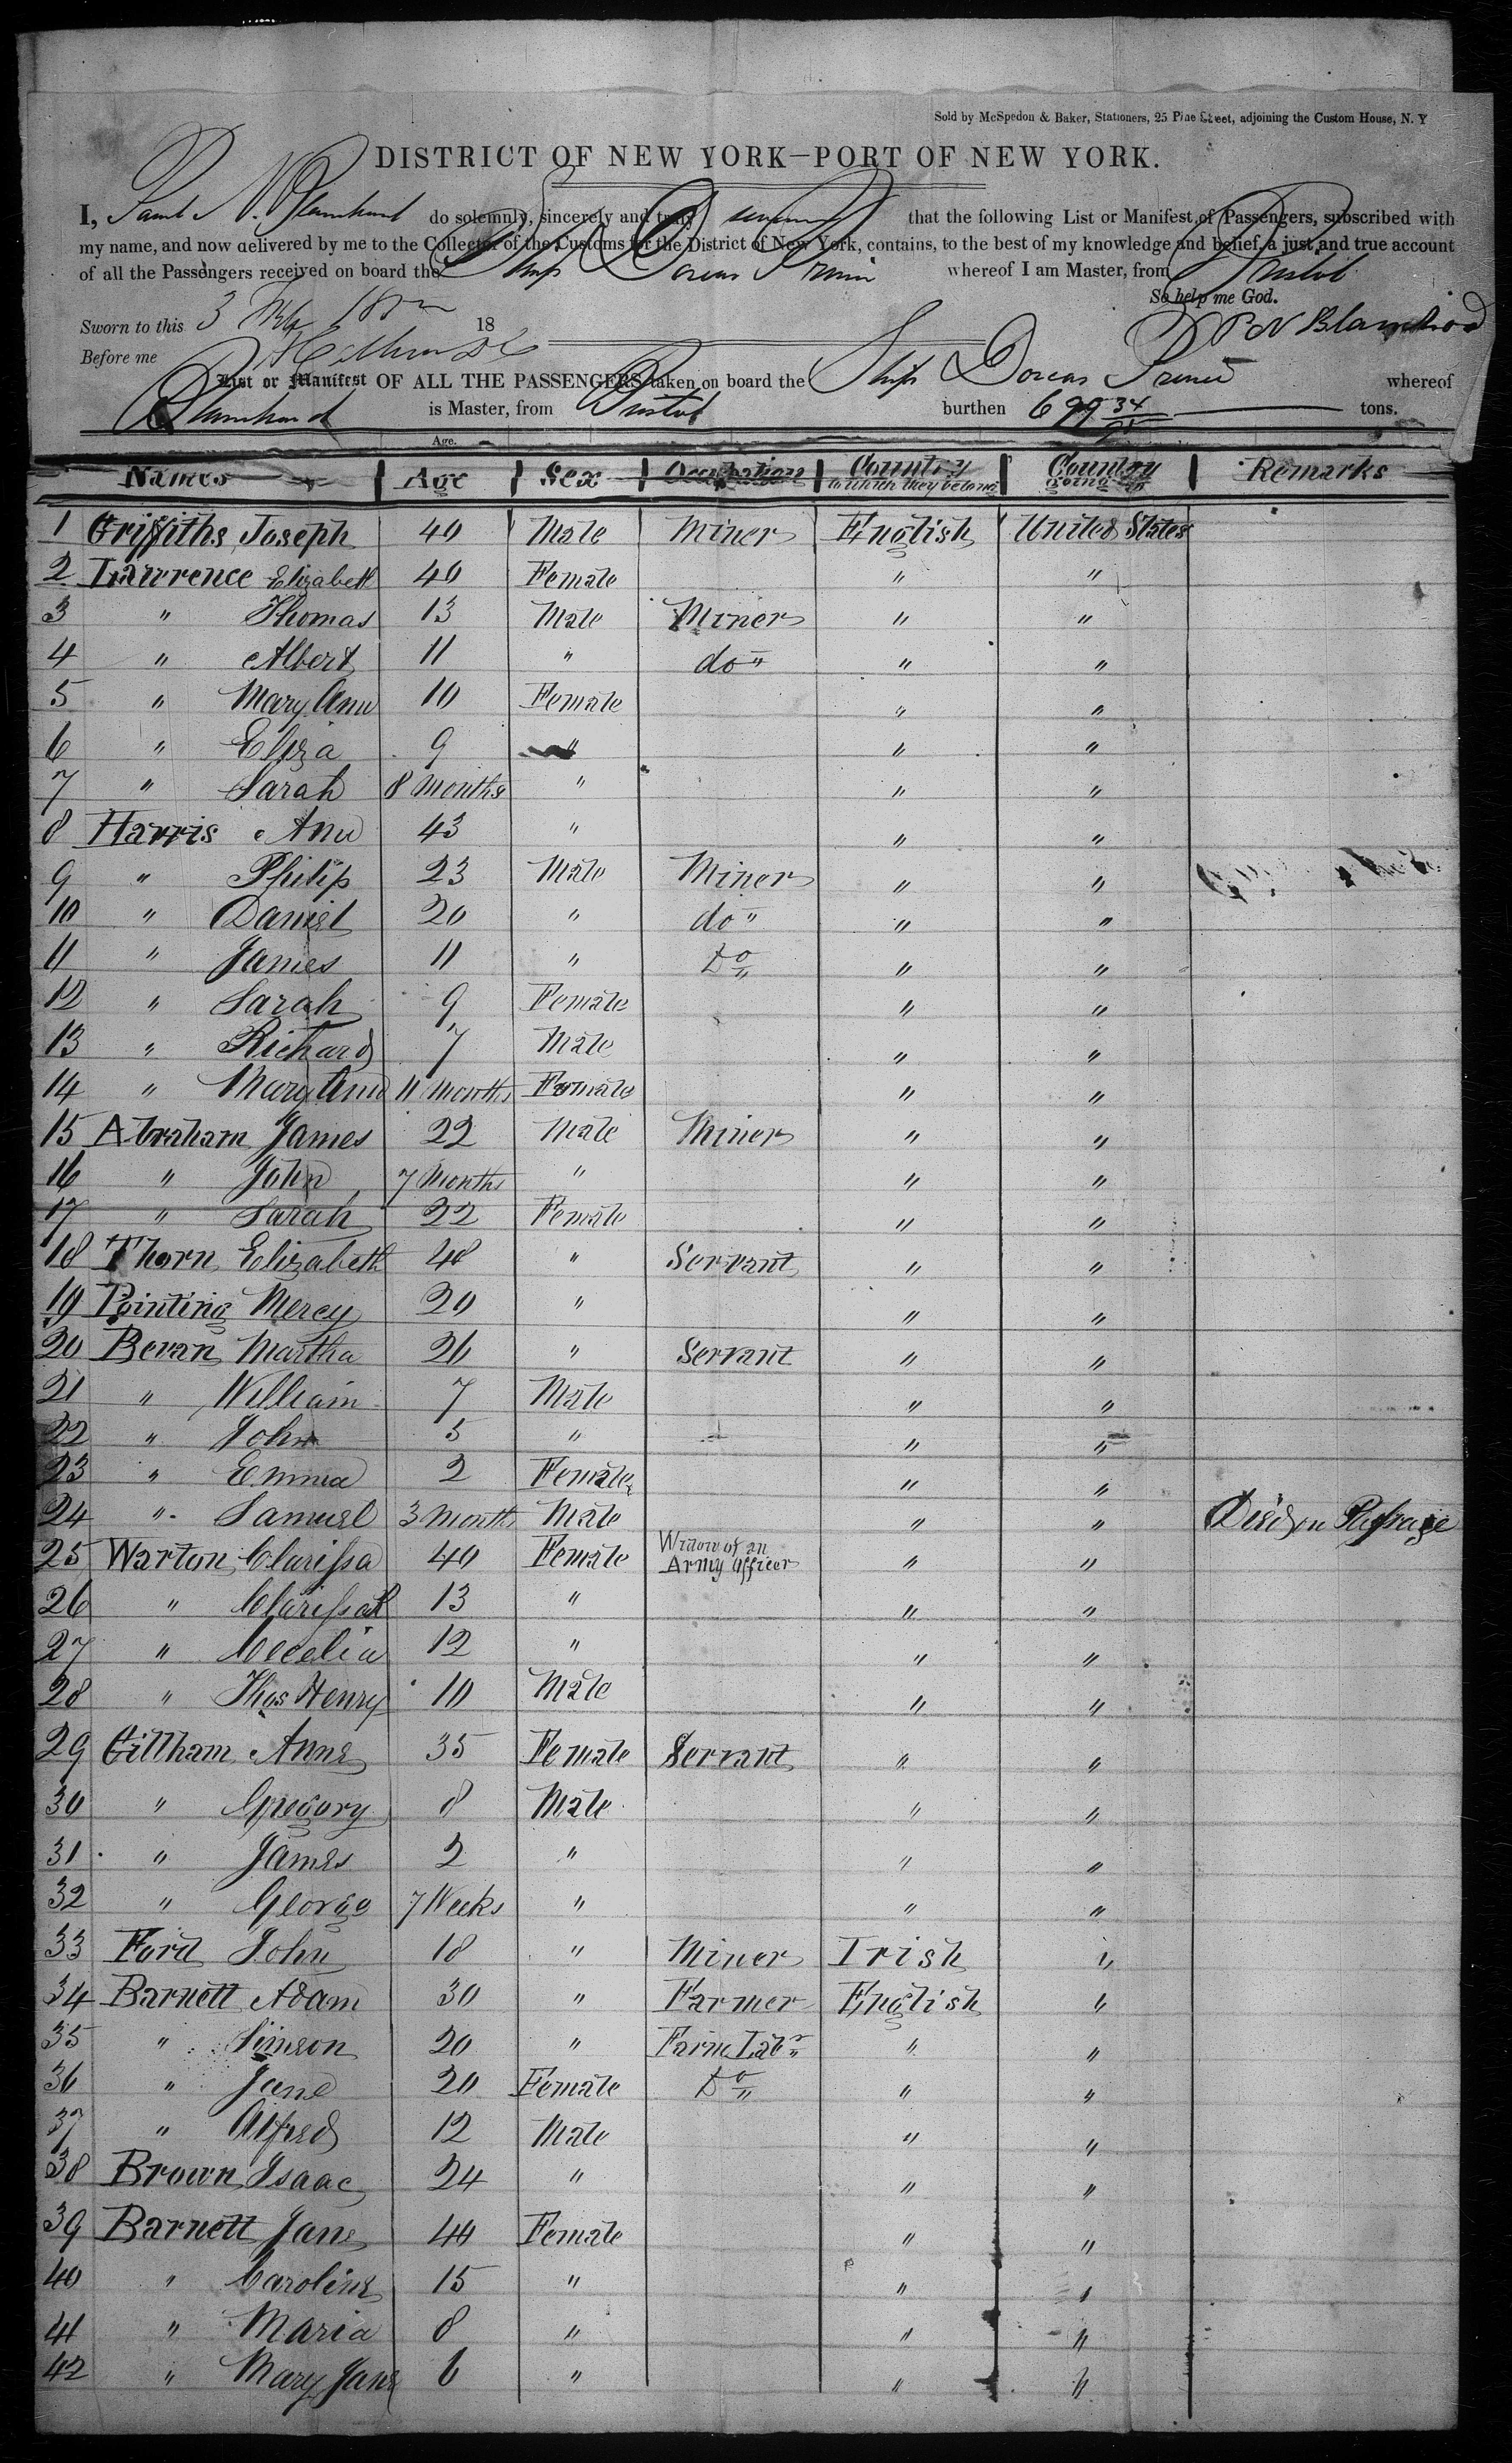 Sold by McSpedon & Baker, Stationers, 25 Pine Street, adjoining the Custom House, N. Y
DISTRICT OF NEW YORK—PORT OF NEW YORK.
I, N. Blanchard do solemnly, sincerely and truly that the following List or Manifest of Passengers, subscribed with
my name, and now delivered by me to the Collector of the Customs for the District of New York, contains, to the best of my knowledge and belief, a just and true account
of all the Passengers received on board the Ship Dorcas Prince whereof I am Master, from Bristol
So help me God.
Sworn to this 3 Feb 185 18
P N Blanchard
Before me
List or Manifest OF ALL THE PASSENGERS taken on board the Ship Dorcas Prince whereof
Blanchard is Master, from Bristol burthen 699 34/95 tons.
Age.
Names Age Sex Occupation Country to which they belong Country going to Remarks
1 Griffiths Joseph 40 Male Miner English United States
2 Lawrence Elizabeth 40 Female " "
3 " Thomas 13 Male Miner " "
4 " Albert 11 " do " " "
5 " Mary Ann 10 Female " "
6 " Eliza 9 " " "
7 " Sarah 8 Months " " "
8 Harris Ann 43 " " "
9 " Philip 23 Male Miner " "
10 " Daniel 20 " do " " "
11 " James 11 " Do " "
12 " Sarah 9 Female " "
13 " Richard 7 Male " "
14 " Mary Ann 11 Months Female " "
15 Abraham James 22 Male Miner " "
16 " John 7 Months " " "
17 " Sarah 22 Female " "
18 Thorn Elizabeth 48 " Servant " "
19 Pointing Mercy 20 " " "
20 Bevan Martha 26 " Servant " "
21 " William 7 Male " "
22 " John 5 " " "
23 " Emma 2 Female " "
24 " Samuel 3 Months Male " " Died on Passage
25 Warton Clarissa 40 Female Widow of an Army Officer " "
26 " Clarissa 13 " " "
27 " Cecelia 12 " " "
28 " Thos Henry 10 Male " "
29 Gillham Anne 35 Female Servant " "
30 " Gregory 8 Male " "
31 " James 2 " " "
32 " George 7 Weeks " " "
33 Ford John 18 " Miner Irish "
34 Barnett Adam 30 " Farmer English "
35 " Simeon 20 " Farm Labr " "
36 " Jane 20 Female Do " "
37 " Alfred 12 Male " "
38 Brown Isaac 24 " " "
39 Barnett Jane 44 Female " "
40 " Caroline 15 " " "
41 " Maria 8 " " "
42 " Mary Jane 6 " " "